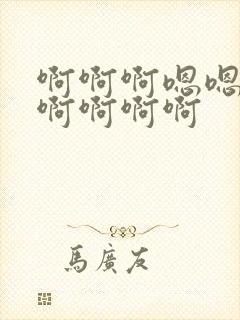 啊啊啊嗯嗯
啊啊啊啊
馬廣友